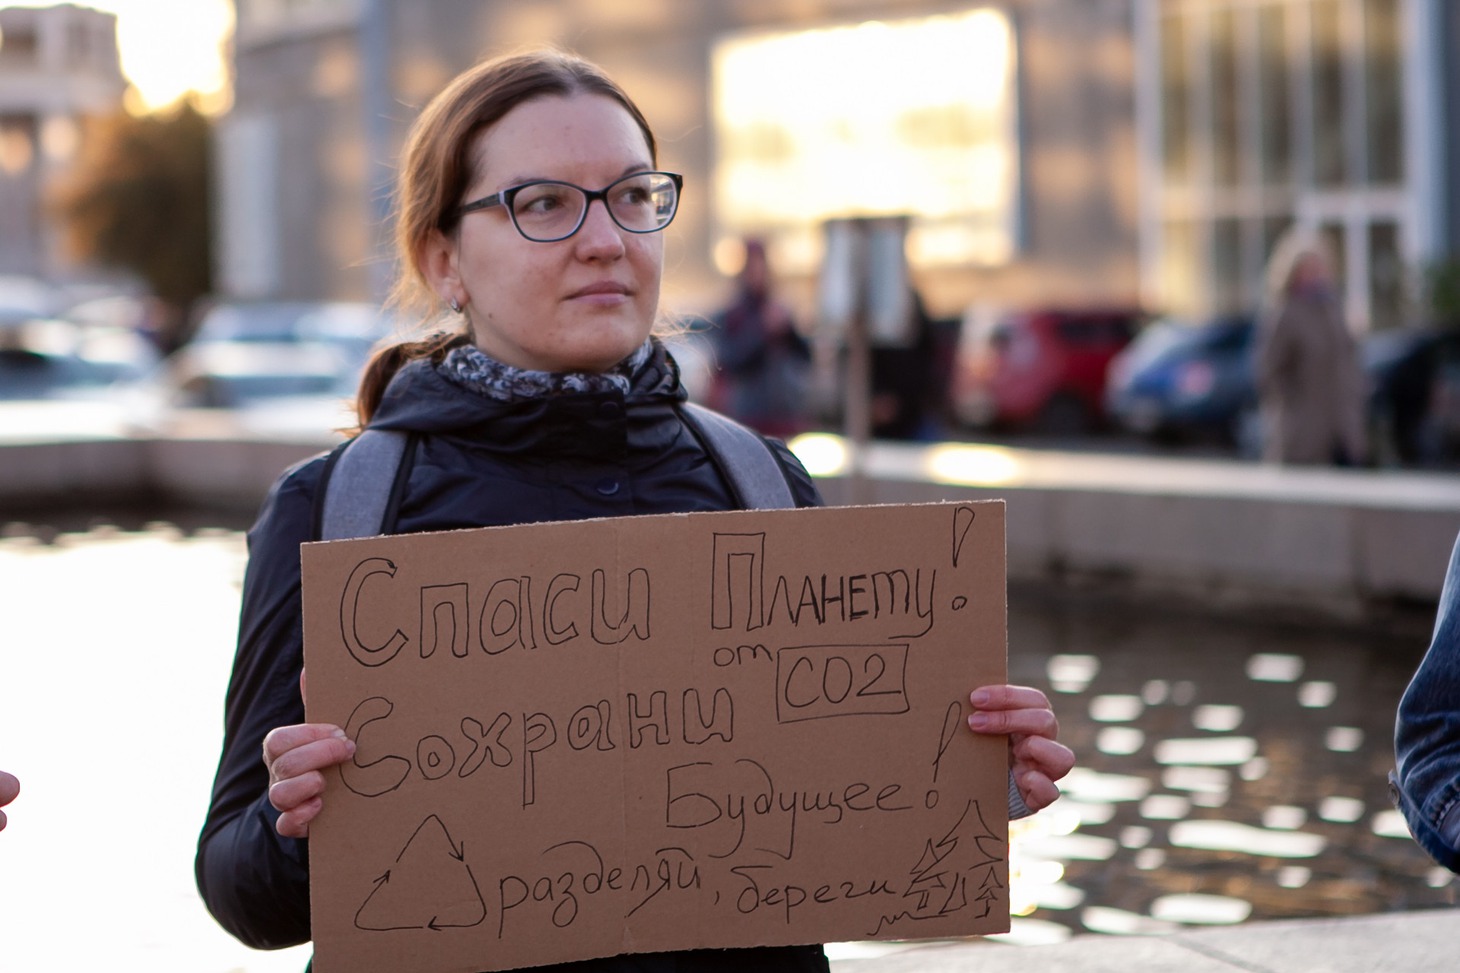 Спаси Планету!
от CO2
Сохрани
Будущее!
разделяй, береги